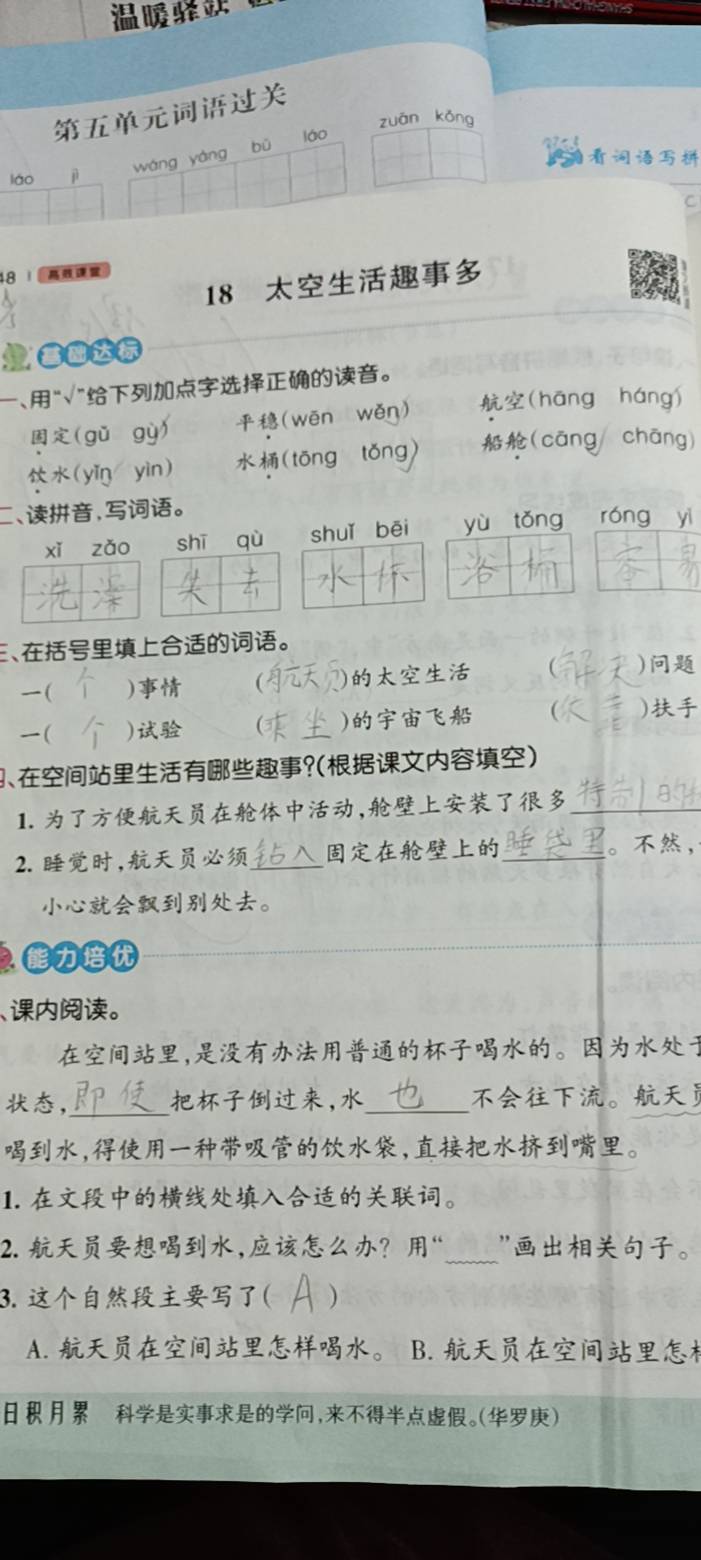 温暖驿站
第五单元词语过关
láo jì wāng yáng bǔ láo zuān kǒng
看词语写拼
48 高效课堂
18 太空生活趣事多
基础达标
一、用“√”给下列加点字选择正确的读音。
固定(gǔ gù) 平稳(wēn wěn) 航空(hāng háng)
饮水(yǐn yìn) 水桶(tōng tǒng) 船舱(cāng chāng)
二、读拼音,写词语。
xǐ zǎo shī qù shuǐ bēi yù tǒng róng yì
洗澡 失去 水杯 浴桶 容易
三、在括号里填上合适的词语。
一( 个 )事情 (航天员)的太空生活 (解决)问题
一( 个 )试验 (乘坐)的宇宙飞船 ( )扶手
四、在空间站里生活有哪些趣事?(根据课文内容填空)
1. 为了方便航天员在舱体中活动,舱壁上安装了很多特制的
2. 睡觉时,航天员必须钻入固定在舱壁上的睡袋里。不然,
小心就会飘到别处去。
能力培优
、课内阅读。
在空间站里,是没有办法用普通的杯子喝水的。因为水处于
状态,即使把杯子倒过来,水也不会往下流。航天员
喝到水,得使用一种带吸管的饮水袋,直接把水挤到嘴里。
1. 在文段中的横线处填入合适的关联词。
2. 航天员要想喝到水,应该怎么办? 用“ ”画出相关句子。
3. 这个自然段主要写了( A )
A. 航天员在空间站里怎样喝水。 B. 航天员在空间站里怎样
日积月累 科学是实事求是的学问,来不得半点虚假。(华罗庚)